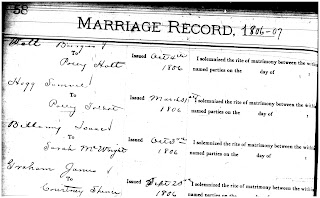 58
MARRIAGE RECORD, 1806-07
Holt
To Issued Oct 4th I solemnized the rite of matrimony between the
Polly Holt 1806 named parties on the day of
Hogg Samuel
To Issued March I solemnized the rite of matrimony between the
Polly Talbot 1806 named parties on the day of
Bellamy Isaac
To Issued Oct I solemnized the rite of matrimony between the
Sarah McWright 1806 named parties on the day of
Graham James
To Issued Sept I solemnized the rite of matrimony between the
Courtney 1806 named parties on the day of